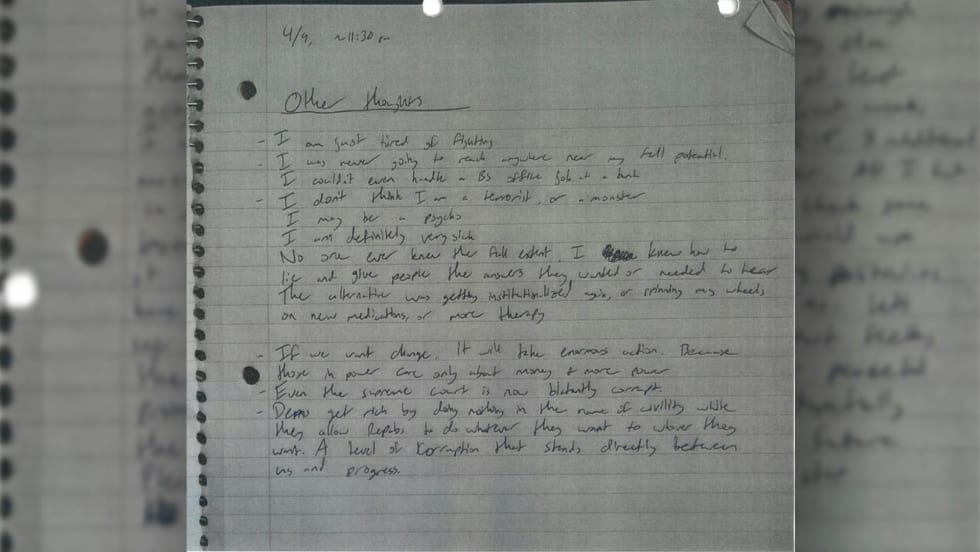 4/9, ~11:30 pm
Other thoughts
- I am just tired of fighting
- I was never going to reach anywhere near my full potential.
I couldn't even handle a BS office job at a bank
- I don't think I am a terrorist, or a monster
I may be a psycho
I am definitely very sick
No one ever knew the full extent. I knew how to
lie and give people the answers they wanted or needed to hear
The alternative was getting institutionalized again, or spinning my wheels
on new medications, or more therapy
- If we want change, it will take enormous action. Because
those in power care only about money & more power
- Even the supreme court is now blatantly corrupt.
- Dems get rich by doing nothing in the name of civility while
they allow Repubs to do whatever they want to whoever they
want. A level of Corruption that stands directly between
us and progress.